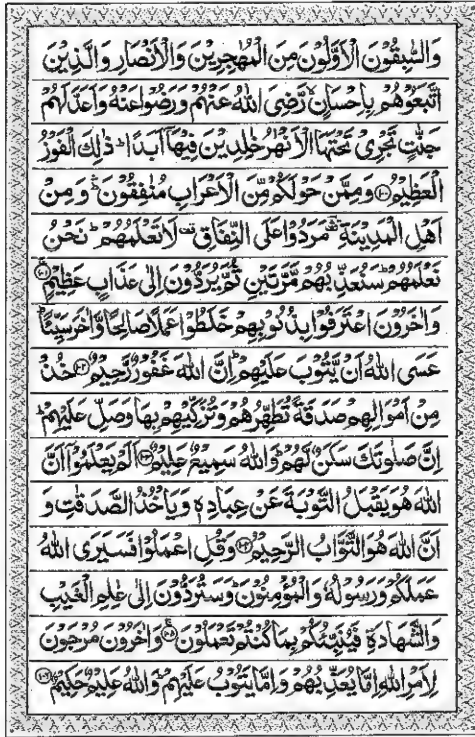 وَالسّٰبِقُوْنَ الْاَوَّلُوْنَ مِنَ الْمُهٰجِرِيْنَ وَالْاَنْصَارِ وَالَّذِيْنَ
اتَّبَعُوْهُمْ بِاِحْسَانٍ ۙ رَّضِيَ اللّٰهُ عَنْهُمْ وَرَضُوْا عَنْهُ وَاَعَدَّ لَهُمْ
جَنّٰتٍ تَجْرِيْ تَحْتَهَا الْاَنْهٰرُ خٰلِدِيْنَ فِيْهَاۤ اَبَدًا ؕ ذٰلِكَ الْفَوْزُ
الْعَظِيْمُ ﴿۱۰۰﴾ وَمِمَّنْ حَوْلَكُمْ مِّنَ الْاَعْرَابِ مُنٰفِقُوْنَ ؕ وَمِنْ
اَهْلِ الْمَدِيْنَةِ ؔۛ مَرَدُوْا عَلَى النِّفَاقِ ۫ لَا تَعْلَمُهُمْ ؕ نَحْنُ
نَعْلَمُهُمْ ؕ سَنُعَذِّبُهُمْ مَّرَّتَيْنِ ثُمَّ يُرَدُّوْنَ اِلٰى عَذَابٍ عَظِيْمٍ ﴿۱۰۱﴾
وَاٰخَرُوْنَ اعْتَرَفُوْا بِذُنُوْبِهِمْ خَلَطُوْا عَمَلًا صَالِحًا وَّاٰخَرَ سَيِّئًا ؕ
عَسَى اللّٰهُ اَنْ يَّتُوْبَ عَلَيْهِمْ ؕ اِنَّ اللّٰهَ غَفُوْرٌ رَّحِيْمٌ ﴿۱۰۲﴾ خُذْ
مِنْ اَمْوَالِهِمْ صَدَقَةً تُطَهِّرُهُمْ وَتُزَكِّيْهِمْ بِهَا وَصَلِّ عَلَيْهِمْ ؕ
اِنَّ صَلٰوتَكَ سَكَنٌ لَّهُمْ ؕ وَاللّٰهُ سَمِيْعٌ عَلِيْمٌ ﴿۱۰۳﴾ اَلَمْ يَعْلَمُوْۤا اَنَّ
اللّٰهَ هُوَ يَقْبَلُ التَّوْبَةَ عَنْ عِبَادِهٖ وَيَاْخُذُ الصَّدَقٰتِ وَ
اَنَّ اللّٰهَ هُوَ التَّوَّابُ الرَّحِيْمُ ﴿۱۰۴﴾ وَقُلِ اعْمَلُوْا فَسَيَرَى اللّٰهُ
عَمَلَكُمْ وَرَسُوْلُهٗ وَالْمُؤْمِنُوْنَ ؕ وَسَتُرَدُّوْنَ اِلٰى عٰلِمِ الْغَيْبِ
وَالشَّهَادَةِ فَيُنَبِّئُكُمْ بِمَا كُنْتُمْ تَعْمَلُوْنَ ﴿۱۰۵﴾ وَاٰخَرُوْنَ مُرْجَوْنَ
لِاَمْرِ اللّٰهِ اِمَّا يُعَذِّبُهُمْ وَاِمَّا يَتُوْبُ عَلَيْهِمْ ؕ وَاللّٰهُ عَلِيْمٌ حَكِيْمٌ ﴿۱۰۶﴾